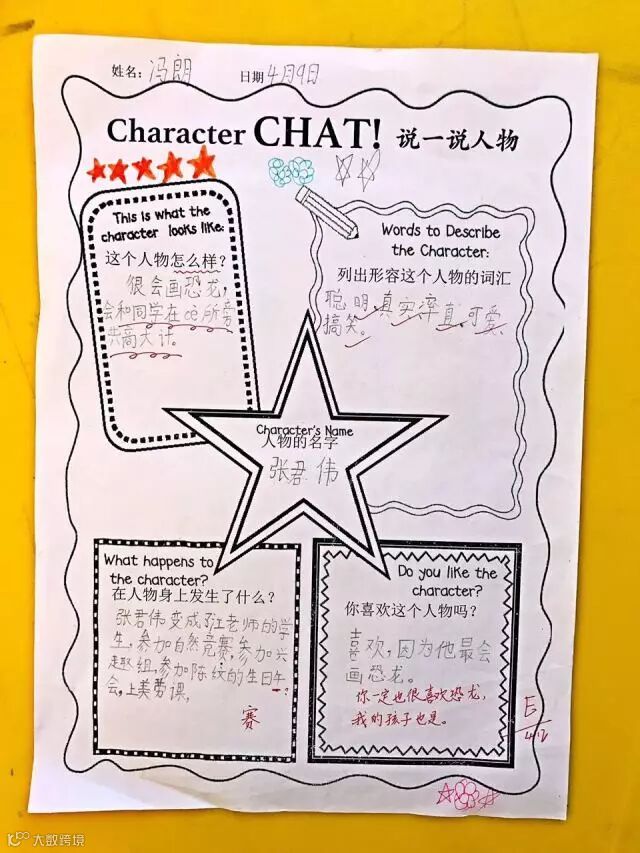 姓名：冯朗 日期4月9日
Character CHAT! 说一说人物
This is what the
character looks like:
这个人物怎么样？
很会画恐龙，
会和同学在cè所旁
共商大计。
Words to Describe
the Character:
列出形容这个人物的词汇
聪明,真实,率直,可爱,
搞笑。
Character's Name
人物的名字
张君伟
What happens to
the character?
在人物身上发生了什么？
张君伟变成了江老师的学
生，参加自然竞赛，参加兴
趣组，参加陈纹的生日午
会，上美劳课，
？
赛
Do you like the
character?
你喜欢这个人物吗？
喜欢，因为他最会
画恐龙。
你一定也很喜欢恐龙，
我的孩子也是。
E
4.12
大数跨境